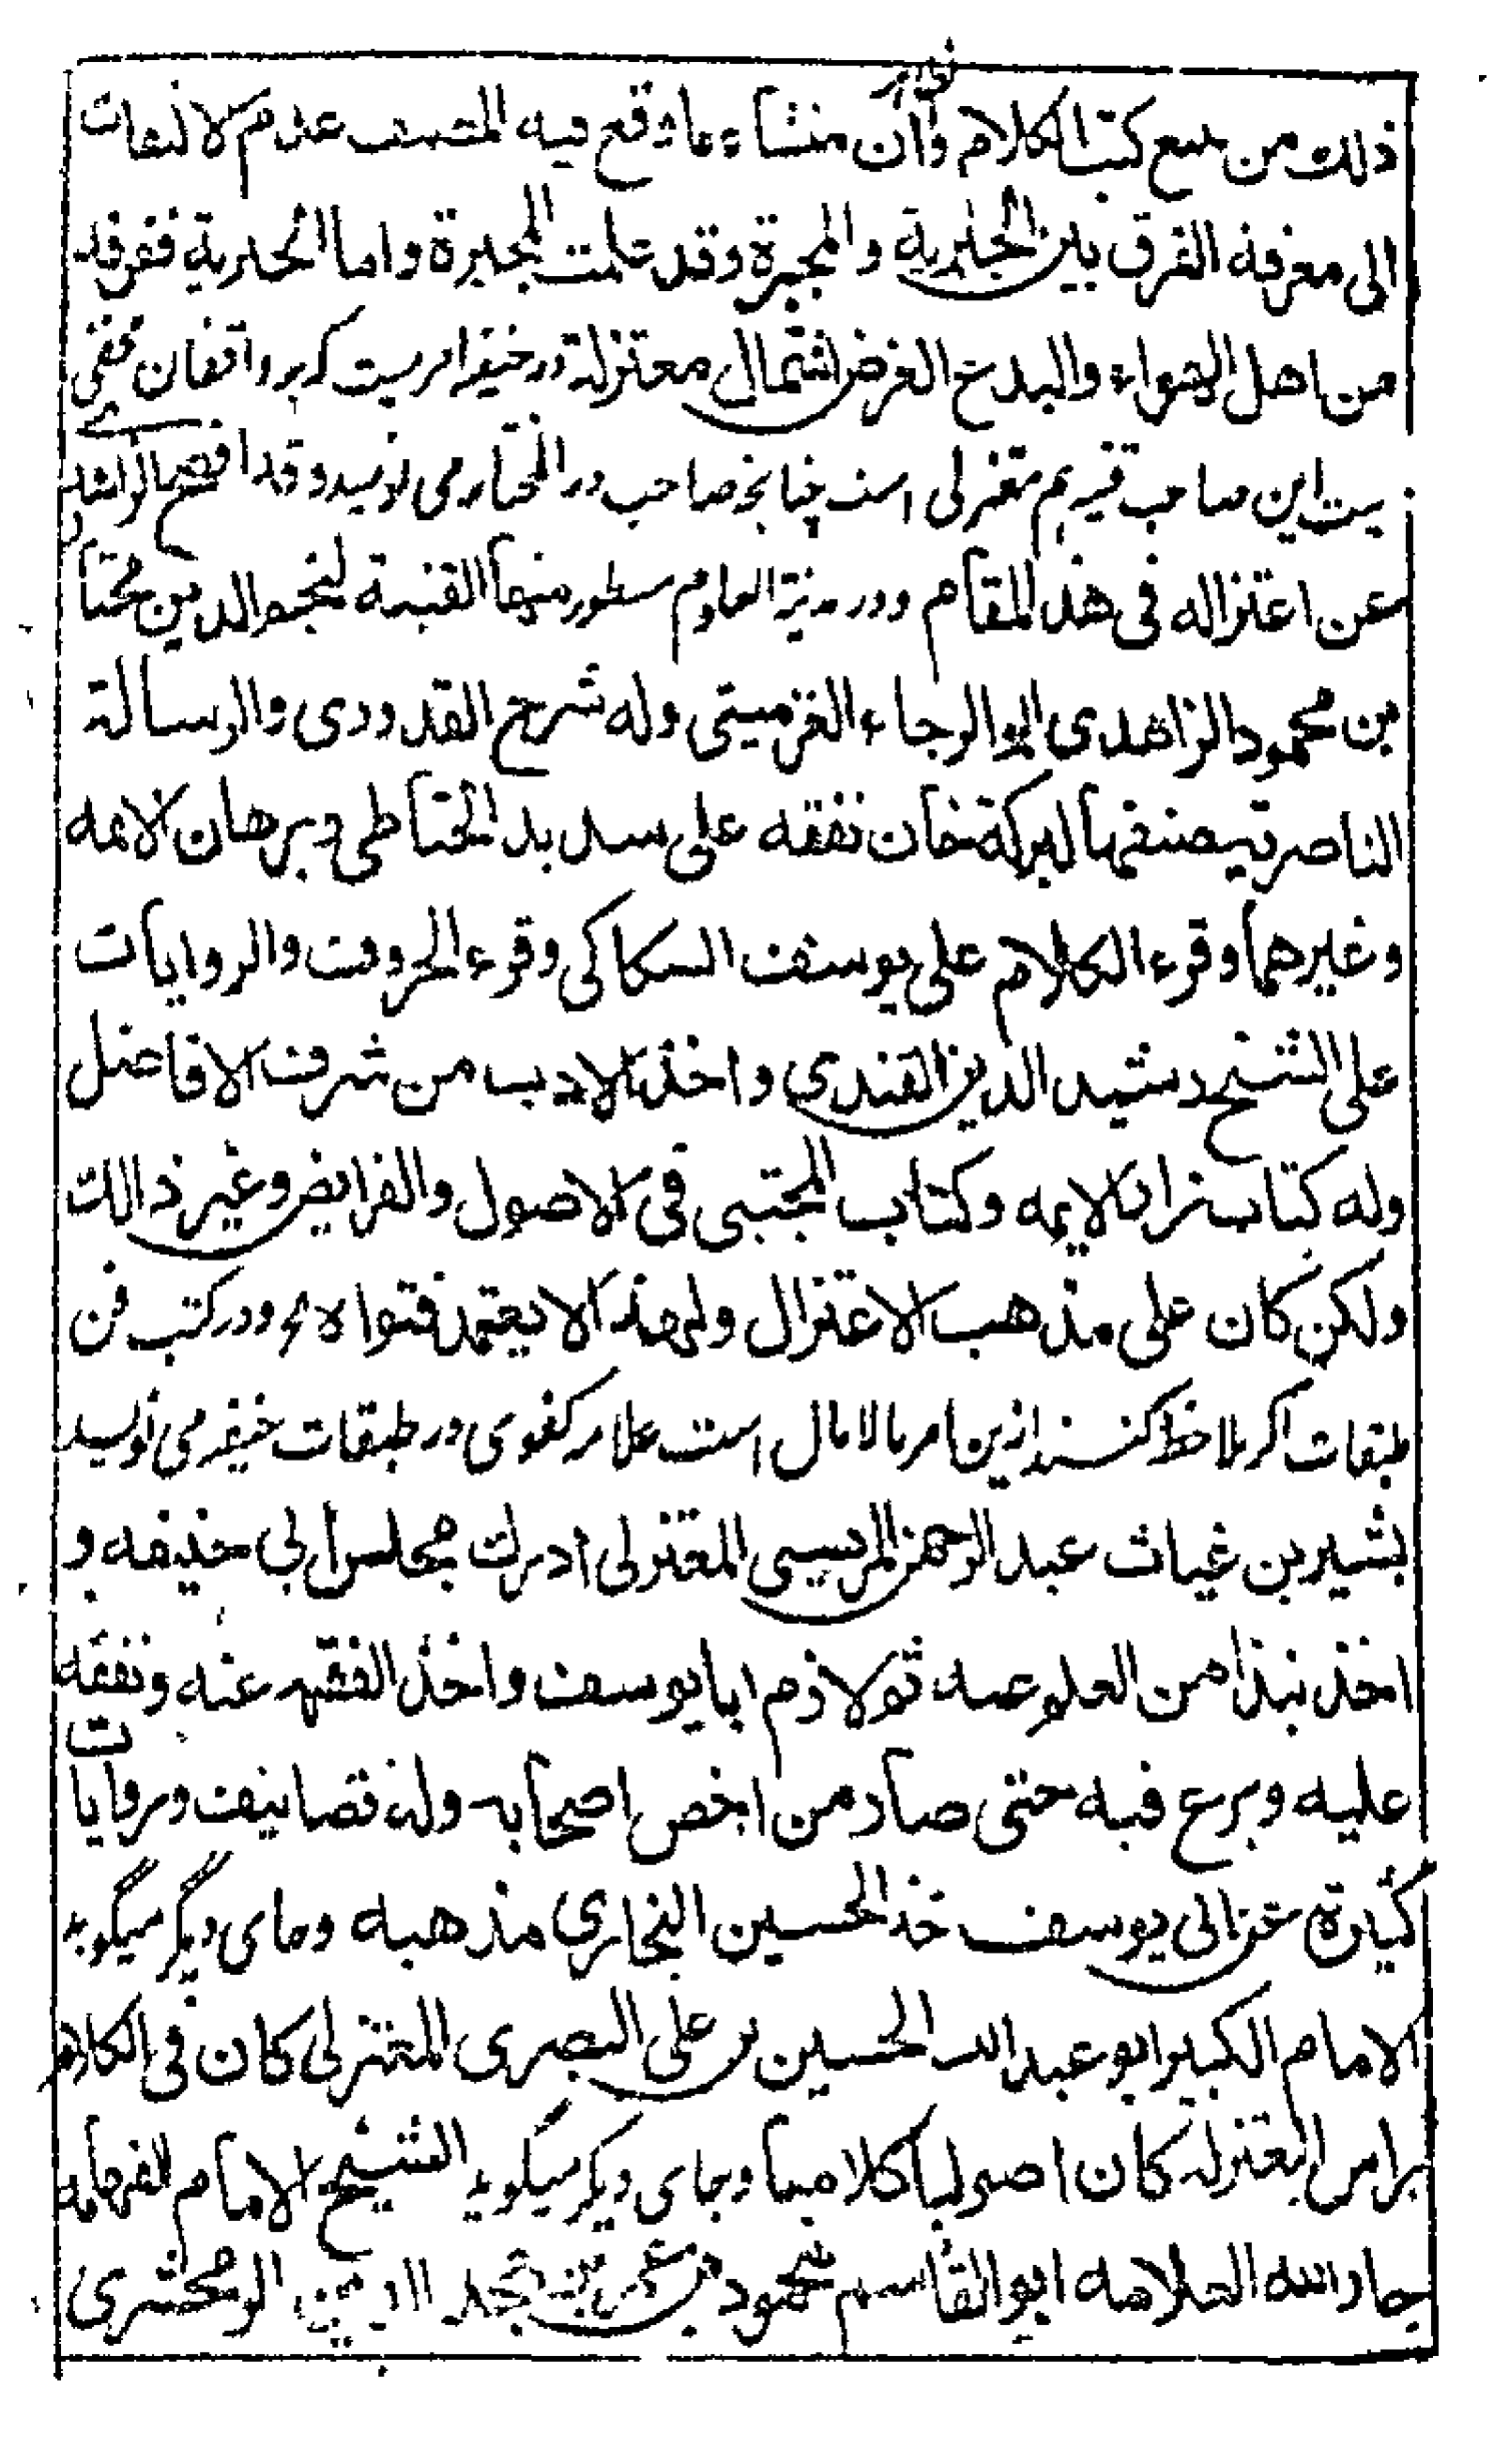 ذلك من كتب الكلام وان منشاء ما وقع فيه المصنف عدم الالتفات
الى معرفة الفرق بين الجبرية والمجبرة وقد علمت المجبرة واما الجبرية ففرقة
من اهل الاهواء والبدع الغرض اشتمال معتزلة در حنفيه امريست كه بر واقفان مخفی
نيست اين صاحب قنيه هم معتزلی است چنانچه صاحب در المختار می نويسد وقد افصح الزاهدی
عن اعتزاله فی هذا المقام ودر مدينة العلوم مسطور منها القنية لنجم الدين مختار
بن محمود الزاهدی ابو الرجاء الغزمينی وله شرح القدوری والرسالة
الناصرية صنفها لبركة خان تفقه على سديد الخياطی وبرهان الائمه
وغيرهما وقرء الكلام علی يوسف السكاكی وقرء الحروف والروايات
علی الشيخ رشيد الدين القندی واخذ الادب من شرف الافاضل
وله كتاب زاد الايمه وكتاب المجتبی فی الاصول والفرايض وغير ذالك
ولكن كان علی مذهب الاعتزال ولهذا لا يعتمد فتواه ودر كتب فن
طبقات اگر ملاحظه كنند ازين امر مالامال است علامه كفوی در طبقات حنفيه می نويسد
بشير بن غياث عبد الرحمن المريسی المعتزلی ادرك مجلس ابی حنيفه و
اخذ نبذا من العلوم عنه ثم لازم ابا يوسف واخذ الفقه عنه وتفقه
عليه وبرع فيه حتی صار من اخص اصحابه وله تصانيف وروايات
كثيرة عن ابی يوسف اخذ الحسين النجاری مذهبه وجای ديگر ميگويد
الامام الكبير ابو عبد الله الحسين بن علی البصری المعتزلی كان فی الكلام
براس المعتزله كان اصوليا كلاميا وبجای ديگر ميگويد الشيخ الامام الفهامه
جار الله العلامه ابو القاسم محمود بن عمر بن محمد الزمخشری